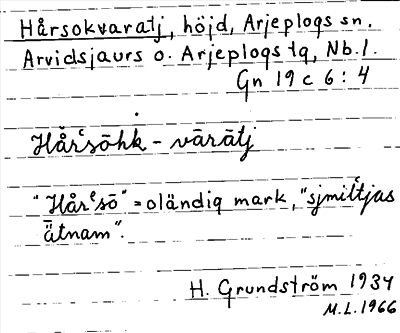 Hårsokvaratj, höjd, Arjeplogs sn.
Arvidsjaurs o. Arjeplogs tg, Nb.l.
Gn 19 c 6 : 4
Hårʿsōhk̇ - vārātj
"Hårʿsō" = oländig mark, "sjmiʿtjas
ätnam".
H. Grundström 1934
M.L. 1966